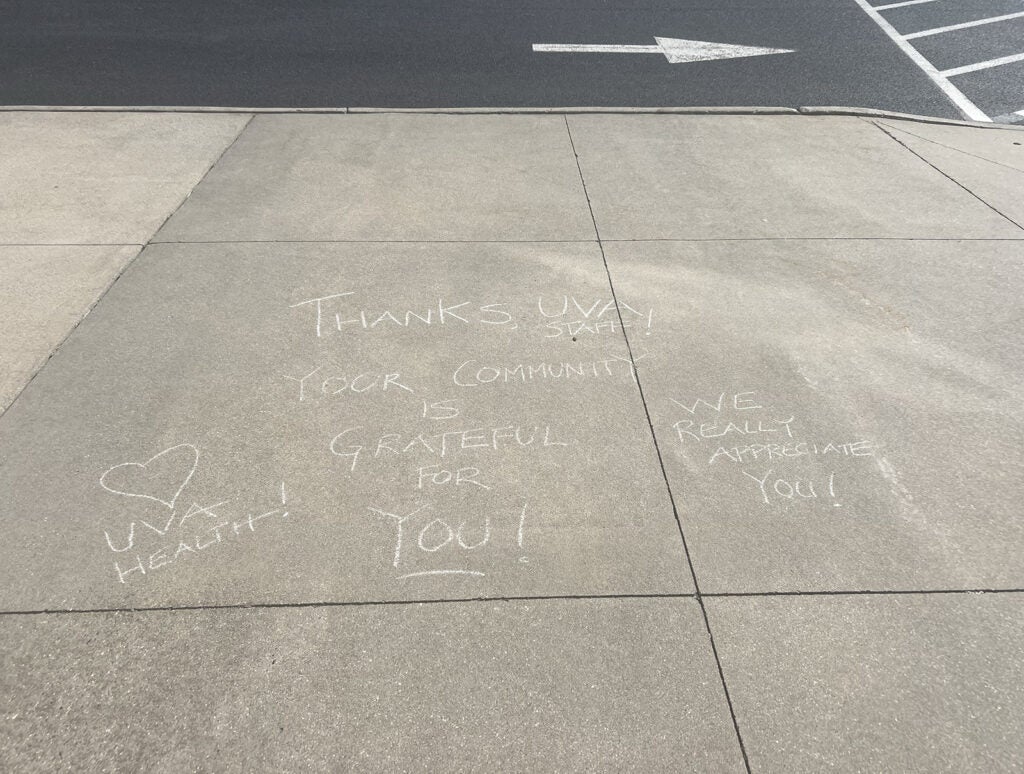 THANKS, UVA
STAFF!
YOUR COMMUNITY
IS
GRATEFUL
FOR
YOU!
UVA
HEALTH!
WE
REALLY
APPRECIATE
YOU!